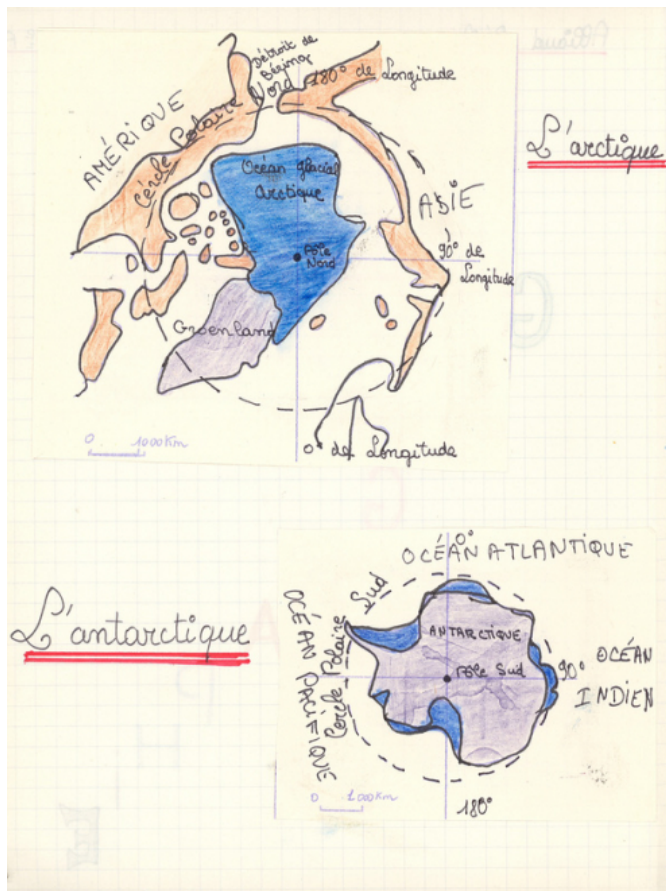 Détroit de
Béring
180° de Longitude
AMÉRIQUE
Cércle Polaire Nord
L'arctique
Océan glacial
Arctique
ASIE
Pôle
Nord
90° de
Longitude
Groenland
0 1000 Km
0° de Longitude
0°
OCÉAN ATLANTIQUE
L'antarctique
OCÉAN PACIFIQUE
Cercle Polaire Sud
ANTARCTIQUE
Pôle Sud
90° OCÉAN
INDIEN
0 1000 Km
180°